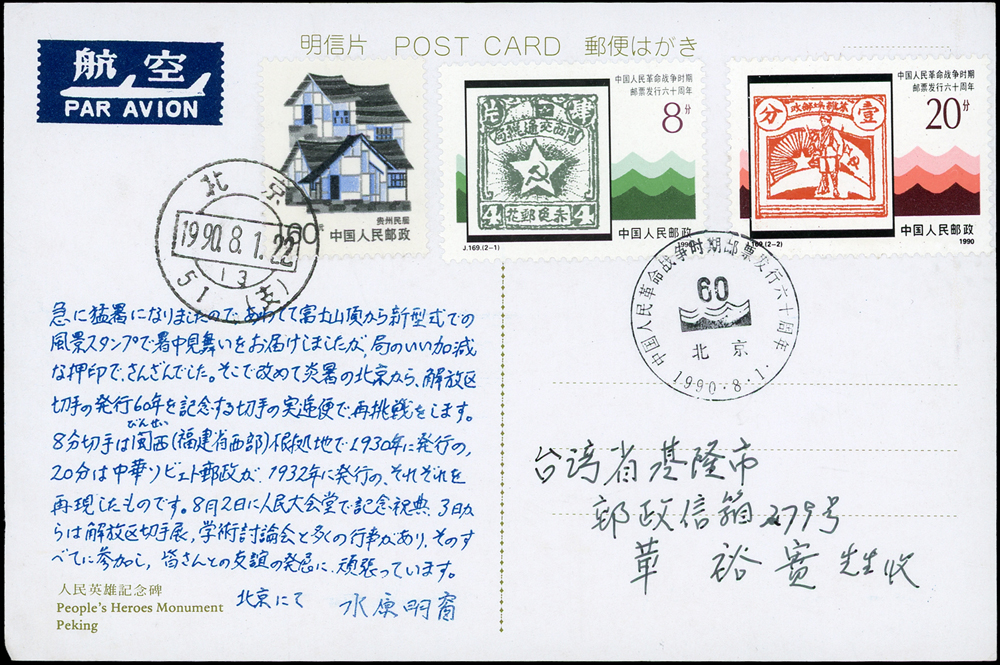 明信片 POST CARD 郵便はがき
航空
PAR AVION
贵州民居
60分
中国人民邮政
中国人民革命战争时期
邮票发行六十周年
8分
閩西交通總局
4 赤色郵花 4
中国人民邮政
J.169.(2-1) 1990
中国人民革命战争时期
邮票发行六十周年
20分
分 壹
中国人民邮政
J.169.(2-2) 1990
北京
1990.8.1.22
13
51 (支)
中国人民革命战争时期邮票发行六十周年
60
北京
1990.8.1.
急に猛暑になりましたので、あわてて富士山頂から新型式での
風景スタンプで暑中見舞いをお届けしましたが、局のいい加減
な押印で、さんざんでした。そこで改めて炎暑の北京から、解放区
切手の発行60年を記念する切手の実逓便で再挑戦をします。
びんせい
8分切手は閩西(福建省西部)根拠地で1930年に発行の、
20分は中華ソビエト郵政が、1932年に発行の、それぞれを
再現したものです。8月2日に人民大会堂で記念祝典、3日か
らは解放区切手展，学術討論会と多くの行事があり、そのす
べてに参加し，皆さんとの友誼の発展に、頑張っています。
北京にて 水原明窗
人民英雄記念碑
People's Heroes Monument
Peking
台湾省基隆市
郵政信箱279号
華裕寬先生收